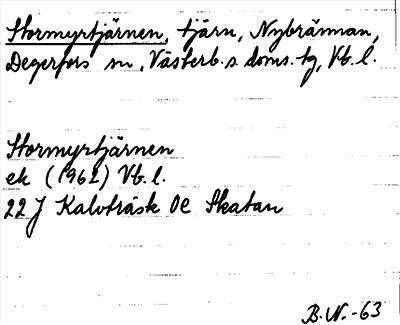 Stormyrtjärnen, tjärn, Nybrännan,
Degerfors sn, Västerb. s. doms. tg, Vb. l.
Stormyrtjärnen
ek (1962) Vb. l.
22 J Kalvträsk 0e Skatan
B.N.-63